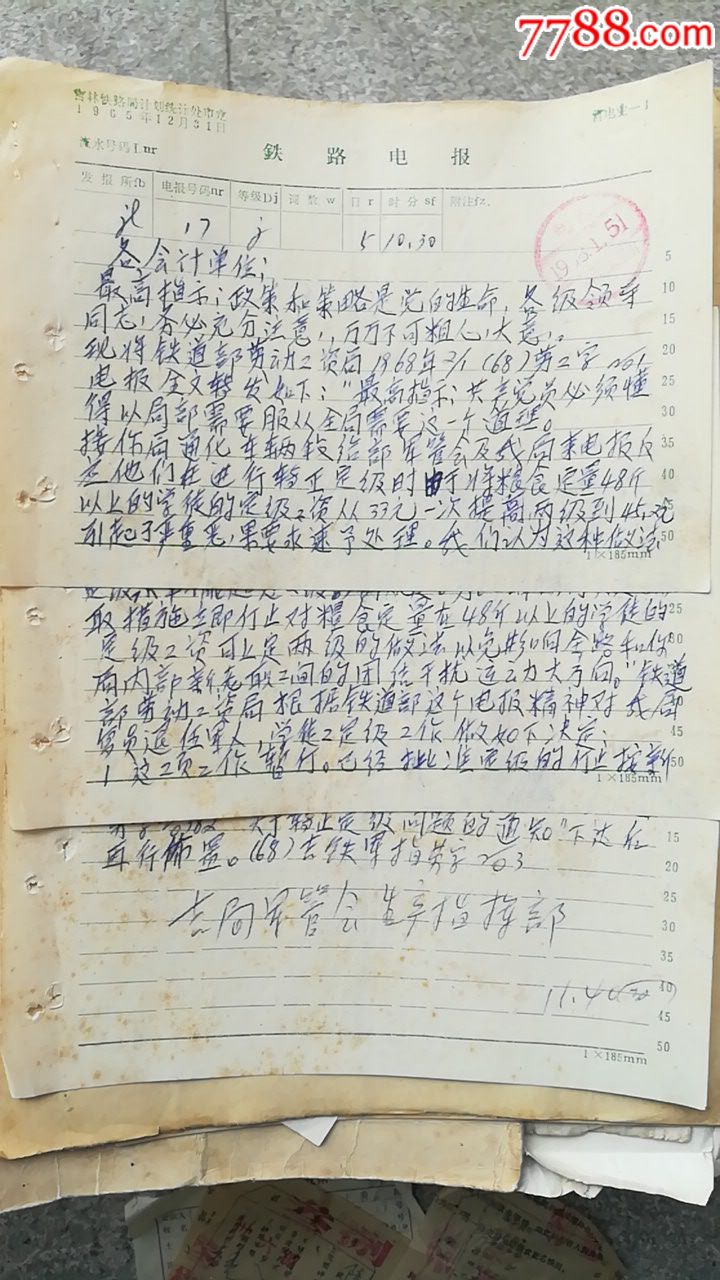 7788.com
吉林铁路局计划统计处印度
1965年12月31日
吉电业-1
流水号码Lnr
鉄路电报
发报所fb 电报号码nr 等级Dj 词数w 日r 时分sf 附注fz.
17 5 10.30
各会计单位;
最高指示;政策和策略是党的生命,各级领导
同志,务必充分注意,万万不可粗心大意。
现将铁道部劳动工资局1968年2/1(68)劳工字201
电报全文转发如下:"最高指示;共产党员必须懂
得以局部需要服从全局需要这一个道理。
接你局通化车辆段给部军管会及我局来电报反
他们在进行转正定级时由于将粮食定量48斤
以上的学徒的定级工资从33元一次提高两级到45.
引起了严重,要求速予处理。我们认为这种做法
1×185mm
取措施立即停止对粮食定量在48斤以上的学徒的
定级工资可上定两级的做法以免影响全路和你
局内部新老职工间的团结干扰运动大方向。"铁道
部劳动工资局根据铁道部这个电报精神对我局
复员退伍军人,学徒工定级工作做如下决定:
1这工项工作暂停。已经批准定级的停止按新
1×185mm
关于转正定级问题的通知"下达后
再行佈置。(68)吉铁军指劳字203
吉局军管会生产指挥部
11.40
1×185mm
5
10
15
20
25
30
35
40
45
50